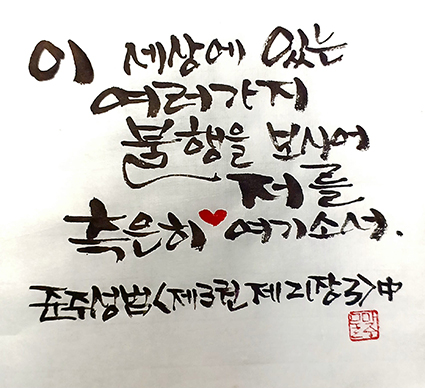 이 세상에 있는
여러가지
불행을 보시어
저를
측은히 여기소서.
준주성범<제3권 제21장3>中